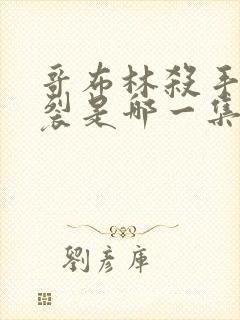 哥布林殺手
裂是哪一集
劉彥庫